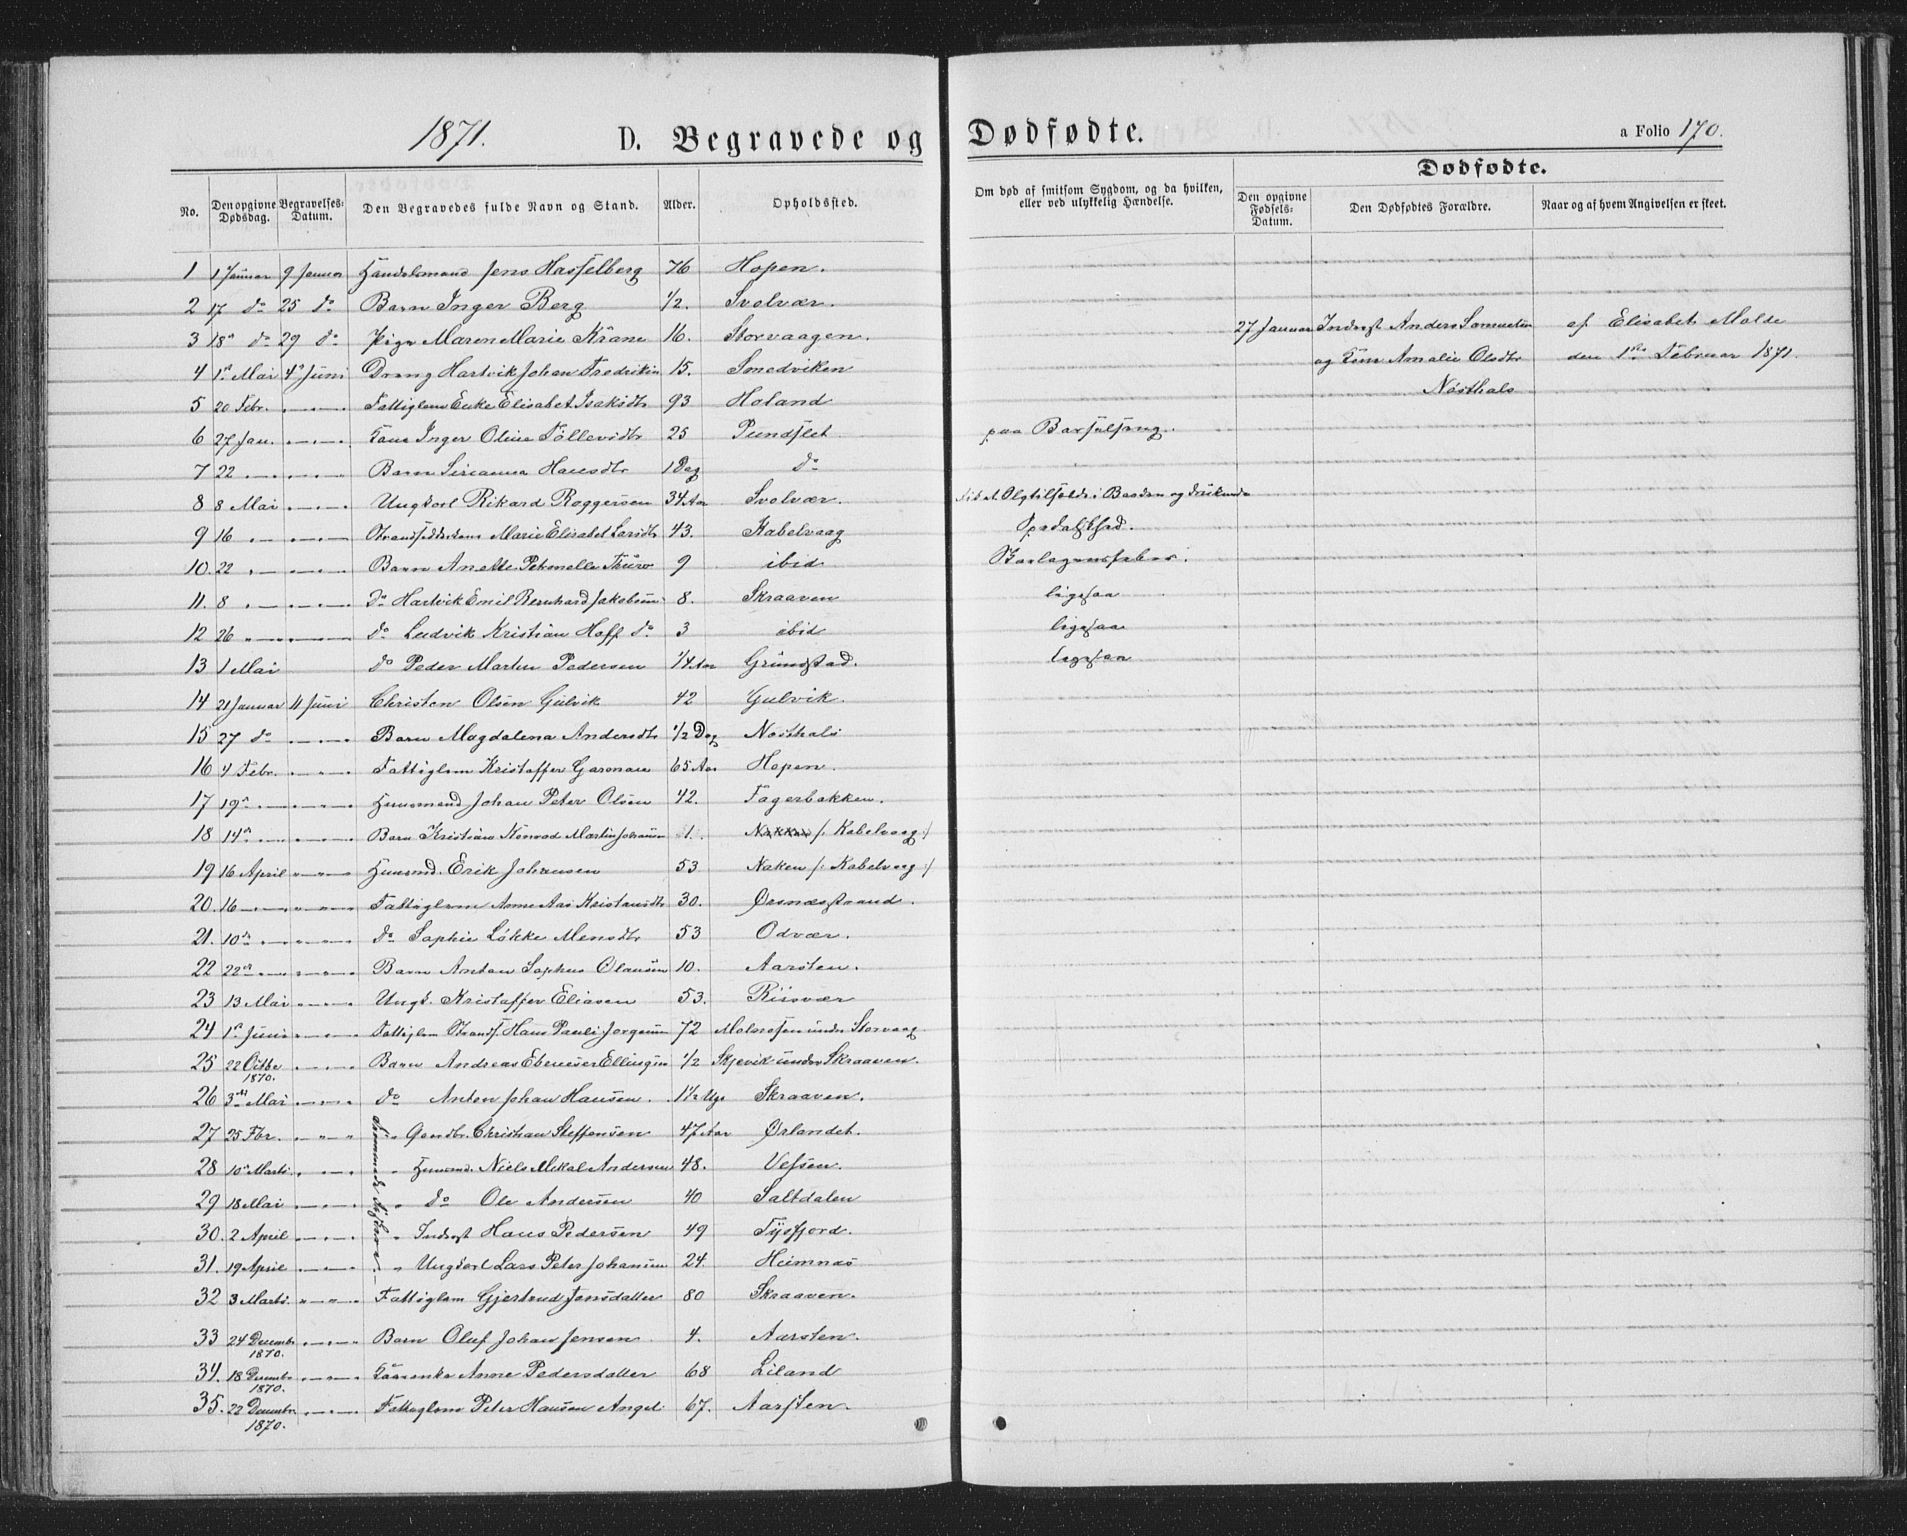 1871. D. Begravede og Dødfødte. a Folio 170.
Dødfødte.
No. Den opgivne Dødsdag. Begravelses-Datum. Den Begravedes fulde Navn og Stand. Alder. Opholdssted. Om død af smitsom Sygdom, og da hvilken, eller ved ulykkelig Hændelse. Den opgivne Fødsels-Datum. Den Dødfødtes Forældre. Naar og af hvem Angivelsen er skeet.
1 1 Januar 9 Januar Handelsmand Jens Hasselberg 76 Hopen.
2 17 do 25 do Barn Inger Berg 1/2. Svolvær.
3 18 do 29 do Pige Maren Marie Krane 16. Storvaagen. 27 Januar Inderst Anders Samuelsen af Elisabet Molde
og Kone Amalie Olsdtr den 1ste Februar 1871.
4 1st Mai 4de Juni Dreng Hartvik Johan Fredriksen 15. Smedviken
Nøsthals
5 20 Febr. Fattiglem Enke Elisabet Isaksdtr 93 Holand
6 27 Jan. Kone Inger Oline Tollevsdtr 25 Pundslet paa Barselseng.
7 22 Barn Sirianna Hansdtr 1 Dag do
8 8 Mai Ungkarl Rikard Roggersen 34 Aar Svolvær.
9 16 Marie Elisabet Larsdtr 43. Kabelvaag Spedalskhed.
10. 22 Barn Anette Petronelle Thuro 9 ibid Skarlagensfeber.
11. 8 do Hartvik Emil Bernhard Jakobsen 8. Skraaven ligesaa
12 26 do Ludvik Kristian Hoff do 3 ibid ligesaa
13 1 Mai do Peder Martin Pedersen 1/4 Aar Grundstad. ligesaa
14 21 Januar 11 Juni Christen Olsen Gulvik 42 Gulvik.
15 27 do Barn Magdalena Andersdtr 1/2 Dag Nøsthals
16 4 Febr. Fattiglem Kristoffer 65 Aar Hopen.
17 19de Huusmand Johan Peter Olsen 42. Fagerbakken.
18 14de Barn Kristian Konrad Martin Johansen 1. /: Kabelvaag :/
19 16 April Huusmd. Erik Johansen 53 Naken /: Kabelvaag :/
20. 16 Fattiglem Anne 30. Ørsnæsstrand.
21. 10de do Sophie Løkke Mensdtr 53 Odvær.
22 22de Barn Anton Sophus Olausen 10. Aarsten.
23 13 Mai Ungk. Kristoffer Eliasen 53. Riisvær
24 1st Juni Fattiglem Strands. Hans Pauli Jorgensen 72 Molnosen under Storvaag
25 22 Octbr 1870. Barn Andreas Ebeneser Ellingsen 1/2 Skjevik under Skraaven.
26 3die Mai do Anton Johan Hansen. 1 1/2 Uge Skraaven.
27 25 Fbr. Fremmede Fiskere Gaardbr. Christian Steffensen 47 Aar Ørlandet.
28 10 Marts. Huusmd. Niels Mikal Andersen 48. Vefsen.
29 18 Mai do Ole Andersen 40 Saltdalen
30. 2 April Inderst Hans Pedersen 49 Tysfjord.
31. 19 April Ungkarl Lars Peter Johansen 24. Hemnæs
32 3 Marts. Fattiglem Gjertrud Jonsdatter 80 Skraaven.
33 24 Decembr 1870. Barn Oluf Johan Jensen 4. Aarsten.
34. 18 Decembr 1870. Anne Pedersdatter 68 Liland
35. 22 Decembr. 1870. Fattiglem Peter Hansen Angel 67. Aarsten.